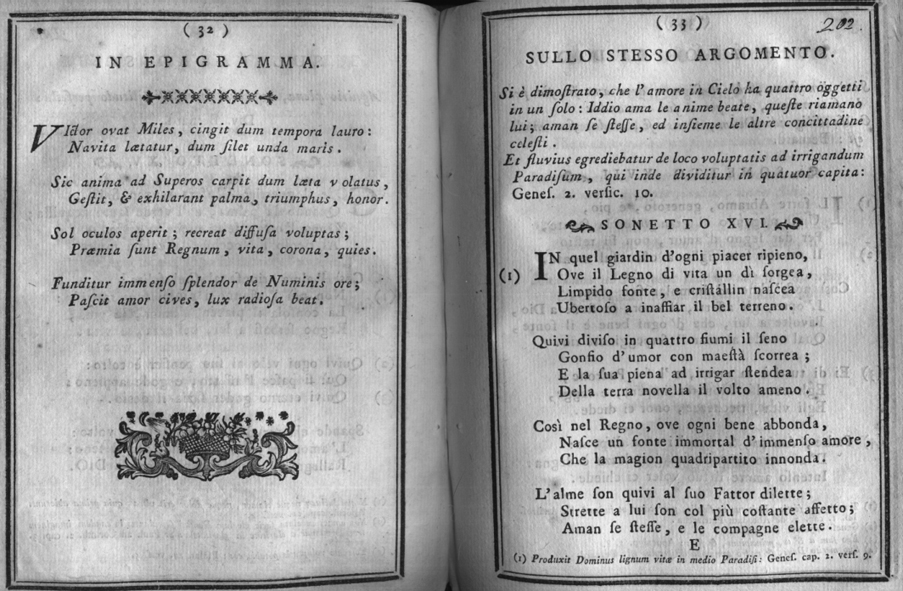 ( 32 )
IN EPIGRAMMA.
VIctor ovat Miles, cingit dum tempora lauro:
Navita lætatur, dum ſilet unda maris.
Sic anima ad Superos carpit dum læta volatus,
Geſtit, & exhilarant palma, triumphus, honor.
Sol oculos aperit; recreat diffuſa voluptas;
Præmia ſunt Regnum, vita, corona, quies.
Funditur immenſo ſplendor de Numinis ore;
Paſcit amor cives, lux radioſa beat.
( 33 )
202
SULLO STESSO ARGOMENTO.
Si è dimoſtrato, che l'amore in Cielo ha quattro oggetti
in un ſolo: Iddio ama le anime beate, queſte riamano
lui; aman ſe ſteſſe, ed inſieme le altre concittadine
celeſti.
Et fluvius egrediebatur de loco voluptatis ad irrigandum
Paradiſum, qui inde dividitur in quatuor capita:
Geneſ. 2. verſic. 10.
SONETTO XVI.
IN quel giardin d'ogni piacer ripieno,
(1) Ove il Legno di vita un dì ſorgea,
Limpido fonte, e criſtallin naſcea
Ubertoſo a inaffiar il bel terreno.
Quivi diviſo in quattro fiumi il ſeno
Gonfio d'umor con maeſtà ſcorrea;
E la ſua piena ad irrigar ſtendea
Della terra novella il volto ameno.
Così nel Regno, ove ogni bene abbonda,
Naſce un fonte immortal d'immenſo amore,
Che la magion quadripartito innonda.
L'alme ſon quivi al ſuo Fattor dilette;
Strette a lui ſon col più coſtante affetto;
Aman ſe ſteſſe, e le compagne elette.
E
(1) Produxit Dominus lignum vitæ in medio Paradiſi: Geneſ. cap. 2. verſ. 9.